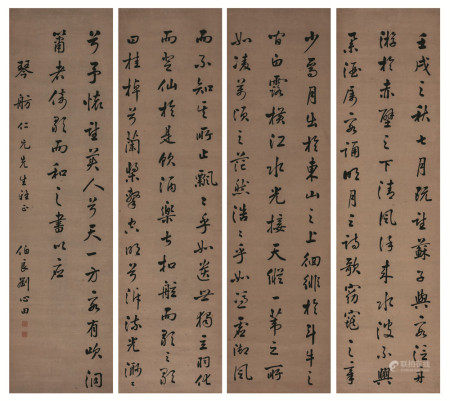 壬戌之秋七月既望蘇子與客泛舟
游於赤壁之下清風徐來水波不興
舉酒屬客誦明月之詩歌窈窕之章
少焉月出於東山之上徘徊於斗牛之
間白露橫江水光接天縱一葦之所
如凌萬頃之茫然浩浩乎如馮虛御風
而不知其所止飄飄乎如遺世獨立羽化
而登仙於是飲酒樂甚扣舷而歌之歌
曰桂棹兮蘭槳擊空明兮泝流光渺渺
兮予懷望美人兮天一方客有吹洞
簫者倚歌而和之書以應
琴舫仁兄先生雅正 伯良劉心田